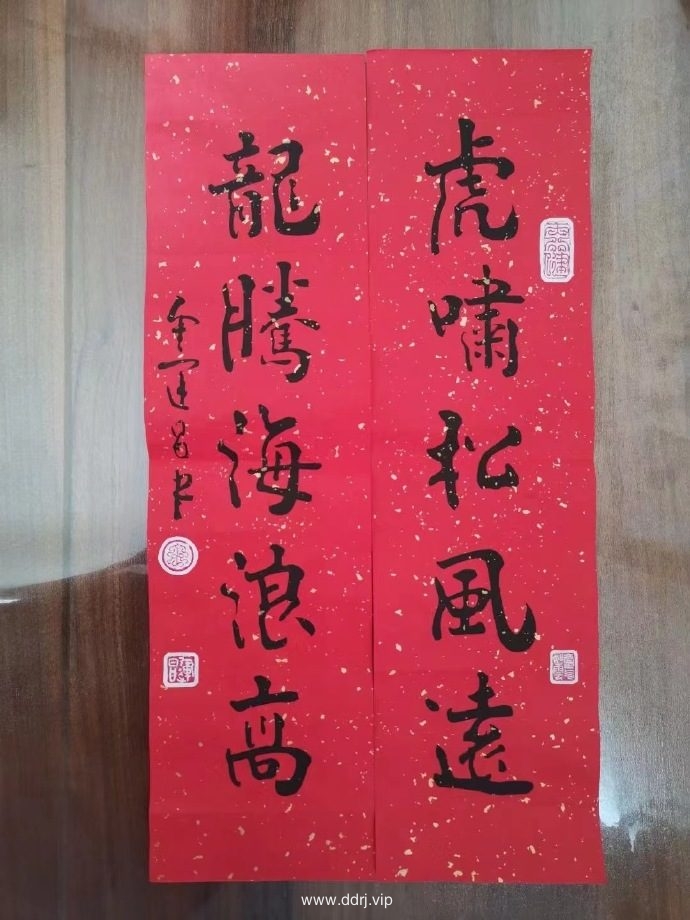 虎嘯松風遠
龍騰海浪高
www.ddrj.vip